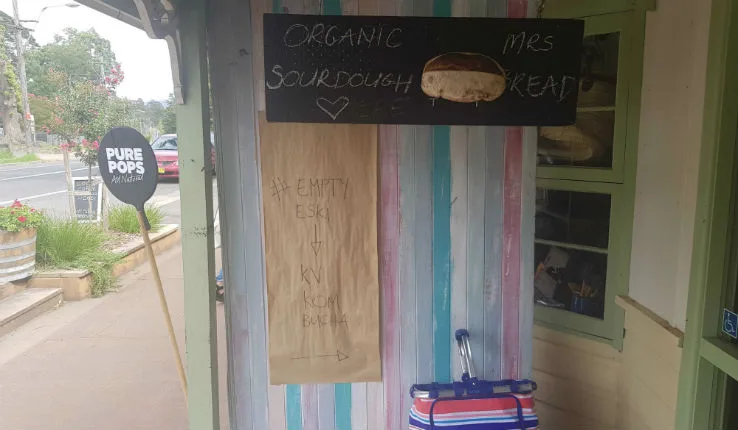 ORGANIC
SOURDOUGH
MRS
BREAD
PURE
POPS
All Natural
# EMPTY
ESKI
KV
KOM
BUCHA